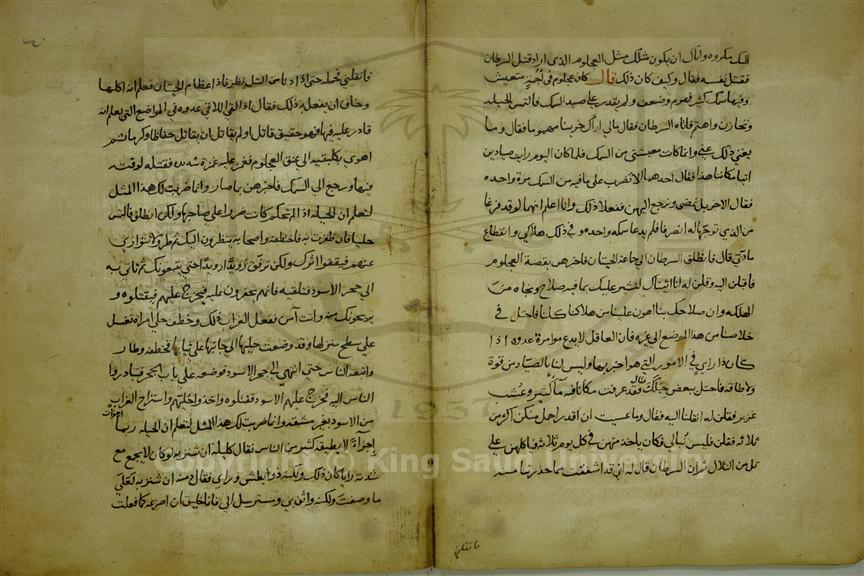 اليك مكروه واياك ان يكون مثلك مثل العلجوم الذي اراد قتل السرطان
فقتل نفسه فقال وكيف كان ذلك قال كان علجوم في تعيش
وفيها سمك كثير فهرم وضعف ولم يقدر على صيد السمك فالتمس الحيله
وتحازن واهتم فاتاه السرطان فقال مالي اراك حزينا مهموما فقال وما
يعني ذلك عني وانما كانت معيشتي من السمك فلما كان اليوم رايت صيادين
اتيا مكاننا هذا فقال احدهما الا نصب على ما فيه من السمك مرة واحده
فقال الاخر بل نمضي ونرجع اليهن ففعلا ذلك وانا اعلم انهما لو قد فرغا
من الذي توجها له انصرفا فلم يدعا سمكه واحده وفي ذلك هلاكي وانقطاع
مادتي قال فانطلق السرطان الى جماعة الحيتان فاخبرهن بقصة العلجوم
فاقبلن اليه وقلن له انا اتيناك لتشير عليك بما فيه صلاح ونجاه من
الهلكه وان صلاحك بنا امون علينا من هلاكنا كلنا فاحتل في
خلاصنا من هذا الموضع الى غيره فان العاقل لا يدع موامرة عدوه اذا
كان ذا راي في الامور التي هو اخبر بها وليس لنا بالصياد من قوة
ولا طاقه فاحتل ببعض حيلك فقال قد عرفت مكانا فيه ماء كثير وعشب
غزير فقلن له انقلنا اليه فقال وما عسيت ان اقدر احمل منكن اكثر من
ثلاثه فقلن فليس نبالي فكان ياخذ منهن في كل يوم ثلاثه فياكلهن على
تل من التلال ثم ان السرطان قال له اني قد اشفقت مما حذرتنا منه
فانقلني
فانقلني فحمله حتى اذا دنا من التل نظر فاذا عظام الحيتان فعلم انه اكلها
وخاف ان يفعل به ذلك فقال اذا لقي اللاقي عدوه في المواضع التي يعلم انه
قادر عليه فيها فهو حقيق قاتل او لم يقاتل ان يقاتل حفاظا وكرما ثم
اهوى بكلبتيه الى عنق العلجوم فغمز عليه غمزة شديده فقتله لوقته
فيها ورجع الى السمك فاخبرهن بما صار وانما ضربت لك هذا المثل
لتعلم ان الحيله اذا لم تحكم كانت ضررا على صاحبها ولكن انطلق فالتمس
حليا فان ظفرت به فاخطفه واصحابه ينظرون اليك ثم طر ولا تتوارى
عنهم فيقفوا اثرك ولكن ترفق رويدا رويدا حتى يتبعونك ثم تاتي به
الى جحر الاسود فتلقيه فانهم يحفرون عليه فيخرج عليهم فيقتلوه و
يريحونك منه وانت آمن ففعل الغراب ذلك وخطف حلي امراة تغسل
على سطح منزلها وقد وضعت حليها الى جانبها على ثيابها فخطفه وطار
واتبعه الناس حتى انتهى الى جحر الاسود فوضعه على باب الجحر فبادروا
الناس اليه فخرج عليهم الاسود فقتلوه واخذوا حليهم واستراح الغراب
من الاسود بغير مشقه وانما ضربت لك هذا المثل لتعلم ان الحيله ربما
اجزات
اجزأت ما لا يطيقه كثير من الناس فقال كليله ان شنزبه لو كان لا يجمع مع
شدته رايا كان ذلك ولكنه ذو ابطش وراي فقال دمنه ان شنزبه لعلى
ما وصفت ولكنه واثق بي ومسترسل الي فانا خليق ان اصرعه كما فعلت
King Saud University
1957